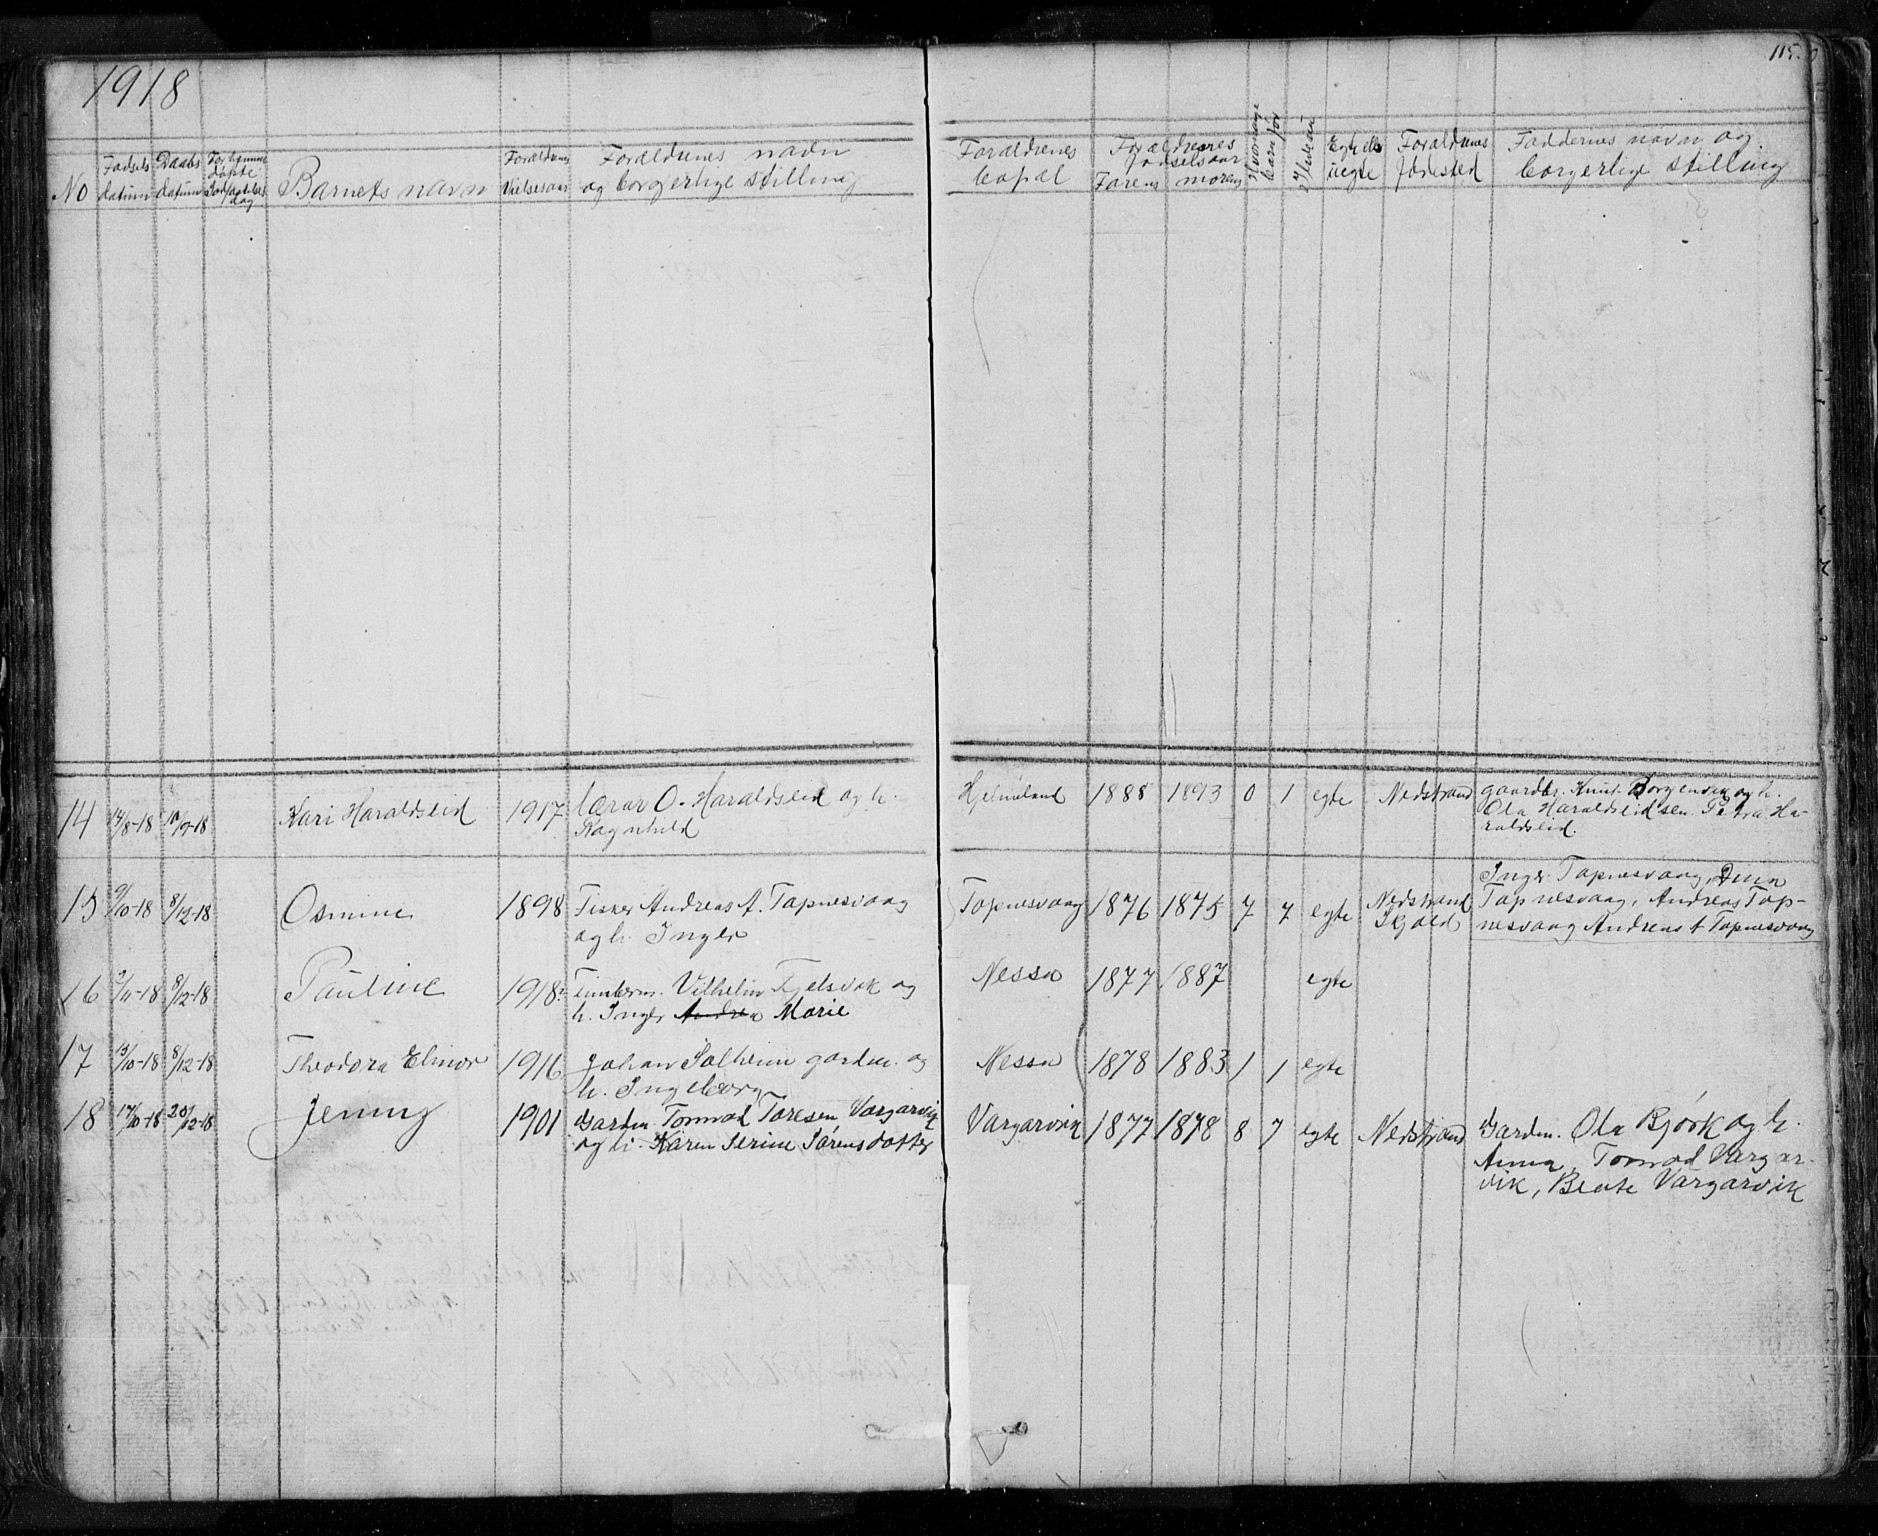 1918
115.
No
Fødsels datum
Daabs datum
Barnets navn
Forældrenes Vielsesaar
Forældrenes navn og borgerlige stilling
Forældrenes bopæl
Forældrenes fødselsaar
Farens
morens
Egte eller uegte
Forældrenes fødested
Faddernes navn og borgerlige stilling
14 14/8-18 10/9-18 Kari Haraldseid 1917 Lærer O. Haraldseid og h. Hjelmeland 1888 1893 0 1 egte Nedstrand gaardbr. Knut Borgenvik og h.
Ragnhild
Ola Haraldseid sen. Petra Ha-
raldseid.
15 9/10-18 8/12-18 Osmine 1898 Fisker Andreas A. Tapnesvaag Tapnesvaag 1876 1875 7 7 egte Nedstrand
og h. Inger
Skjold
Inger Tapnesvaag,
Tapnesvaag, Andreas Tap-
nesvaag Andreas A Tapnesvaag
16 9/11-18 8/12-18 Pauline 1918 Vilhelm Fjelsvik og Nessa 1877 1887 egte
h. Inger Andrea Marie
17 13/10-18 8/12-18 Theodora Elinor 1916 Johan Solheim garden. og Nessa 1878 1883 1 1 egte
h. Ingeborg
18 17/10-18 20/12-18 Jenny 1901 Garden Tormod Toresen Vargarvik Vargarvik 1877 1878 8 7 egte Nedstrand Garden. Ola Bjørk og h.
og h. Karen Serine Sørensdatter
Anna, Tormod Vargar-
vik, Beate Vargarvik